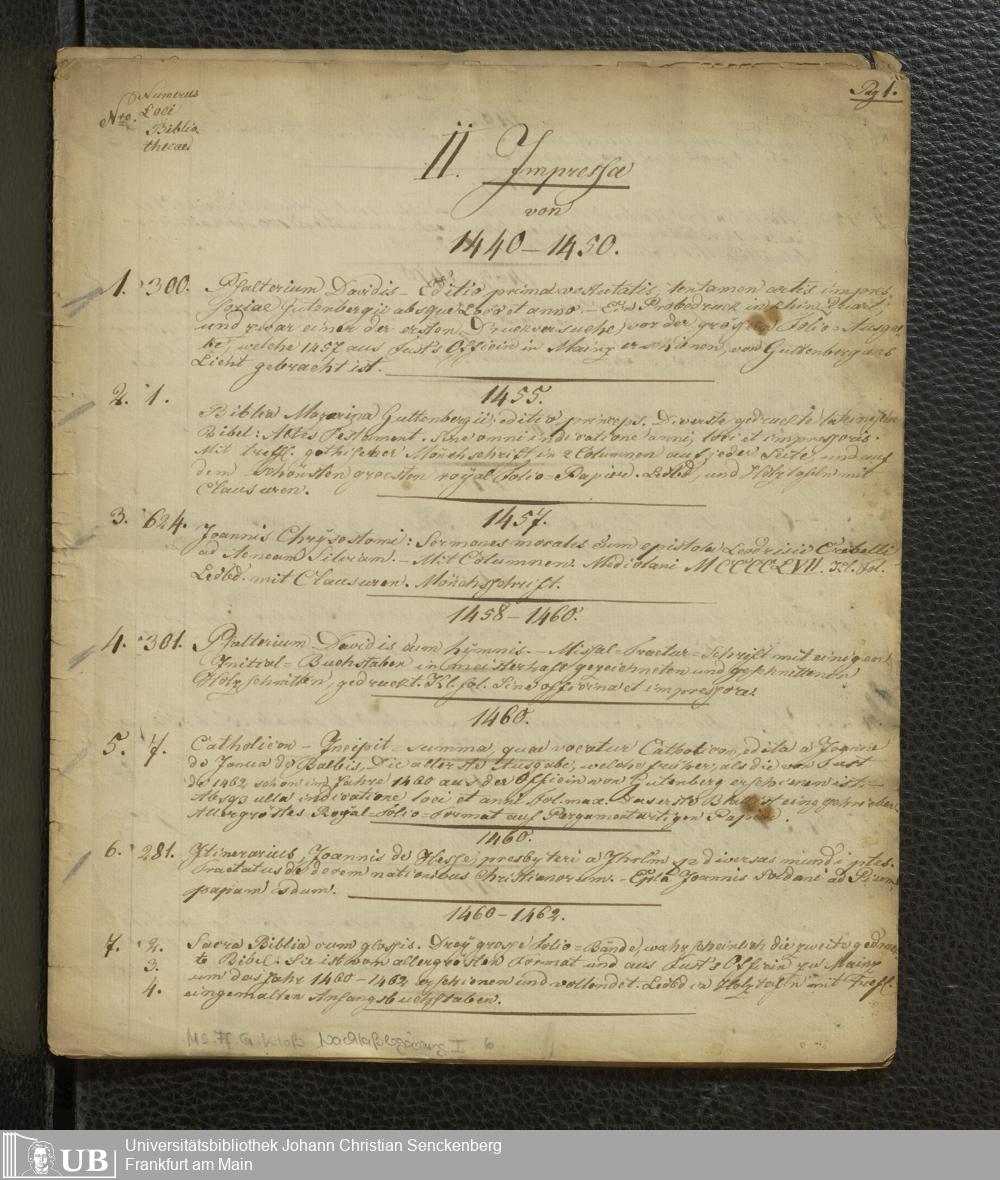 Pag 1.
Nro. Numerus
Loci
Biblio
thecae
II. Impressa
von
1440–1450.
1. 300. Psalterium Davidis – Editio prima vestutatis, tentamen artis impres
soriae Gutenbergii absque Loco et anno. – Ein Probedruck in klein Quart,
und zwar einer der ersten Druckversuche, vor der großen Folio=Ausga
be, welche 1457 aus Fust's Officin in Mainz erschienen, von Guttenberg ans
Licht gebracht ist.
1455.
2. 1. Biblia Mazarina Guttenbergii, editio princeps. Die erste gedruckte lateinische
Bibel: Altes Testament. Sine omni indicatione anni, loci et impressoris.
Mit treffl. gothischer Mönchschrift in 2 Columnen auf jeder Seite, und auf
dem schönsten groesten royal folio=Papier. Ledbd, und Holztafeln mit
Clausuren.
1457.
3. 624. Joannis Chrÿsostomi: Sermones morales cum epistola Leodrisii Cribelli
ad Aeneam Silvium. – Mit Columnen. Mediolani MCCCCLVII. Kl. fol.
Ledbd. mit Clausuren. Mönchsschrift.
1458–1460.
4. 301. Psalterium Davidis cum hÿmnis. – Missal=Fractur=Schrift mit einigen
Initial=Buchstaben in meisterhaft gezeichneten und geschnittenen
Holzschnitten, gedruckt. Kl. fol. Sine officina et impressore.
1460.
5. 7. Catholicon – Incipit summa, quae vocatur Catholicon, edita a Joanne
de Janua de Balbis. Die allerste Ausgabe, welche früher, als die von Fust
de 1462 schon im Jahre 1460 aus der Officin von Gutenberg erschienen ist. –
Absq̃ ulla indicatione loci et anni fol. max. Das erste Blatt ist eingeschrieben
Allergröstes Royal=Folio=Format auf Pergamentartigen Papier.
1460.
6. 281. Itinerarius Joannis de Hesse, presbyteri a Jhrlm̃ p diversas mundi ptes.
Tractatus de decem nationibus Christianorum. – Epla Joannis Soldani ad Pium
papam 2dum.
1460–1462.
7. 2. Sacra Biblia cum glossis. Dreÿ grosse folio=Bände, wahrscheinlich die zweite gedruck
3. te Bibel. Sie ist vom allergrösten Format und aus Fust's Officin zu Mainz
4. um das Jahr 1460–1462 erschienen und vollendet. Ledbd in Holztafln mit treffl.
eingemalten Anfangsbuchstaben.
Ms. Ff. G. Kloß Nachlaßergänzung I 6
UB
Universitätsbibliothek Johann Christian Senckenberg
Frankfurt am Main